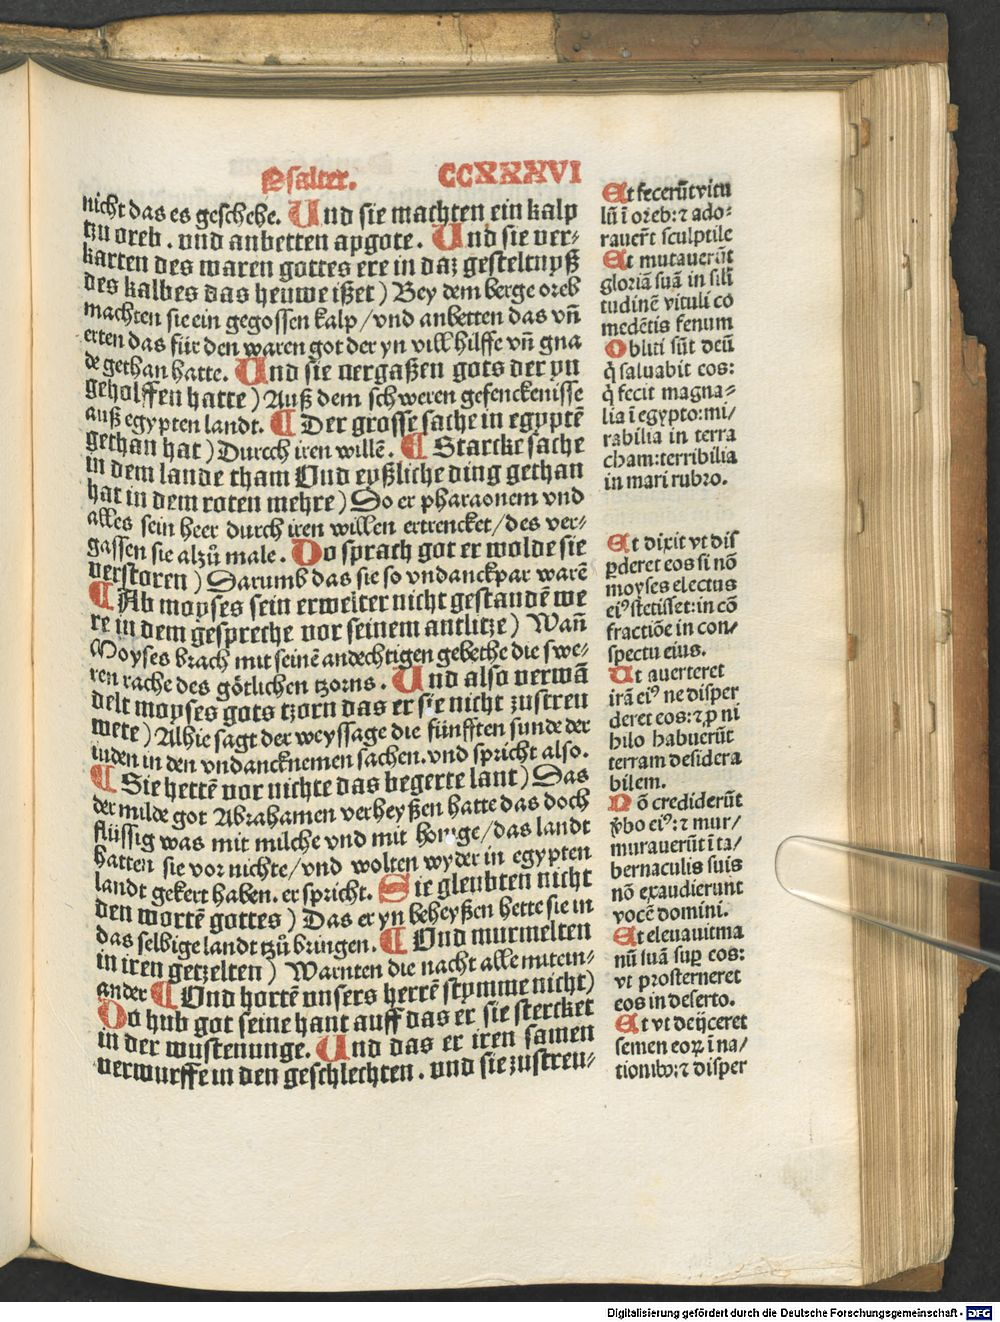 Psalter. CCXXXVI
nicht das es geschehe. Und sie machten ein kalp
tzu oreb. vnd anbetten apgote. Und sie ver⸗
karten des waren gottes ere in daz gesteltnyß
des kalbes das heuwe ißet) Bey dem berge oreb
machten sie ein gegossen kalp/vnd anbetten das vn̄
erten das für den waren got der yn vill hilffe vn̄ gna
de gethan hatte. Und sie vergaßen gots der yn
geholffen hatte) Auß dem schweren gefenckenisse
auß egypten landt. ¶ Der grosse sache in egyptē
gethan hat) Durch iren willē. ¶ Starcke sache
in dem lande cham Vnd eyßliche ding gethan
hat in dem roten mehre) So er pharaonem vnd
alles sein heer durch iren willen ertrencket/des ver⸗
gassen sie alzů male. Do sprach got er wolde sie
verstoren) Darumb das sie so vndanckpar warē
¶ Ab moyses sein erwelter nicht gestandē we
re in dem gespreche vor seinem antlitze) Wan̄
Moyses brach mit seinē andechtigen gebethe die swe⸗
ren rache des götlichen tzorns. Und also verwā
delt moyses gots tzorn das er sie nicht zustreu
wete) Alhie sagt der weyssage die fünfften sunde der
iuden in den vndancknemen sachen. vnd spricht also.
¶ Sie hettē vor nichte das begerte lant) Das
der milde got Abrahamen verheyßen hatte das doch
flüssig was mit milche vnd mit honige/das landt
hatten sie vor nichte/vnd wolten wyder in egypten
landt gekert haben. er spricht. Sie gleubten nicht
den wortē gottes) Das er yn beheyßen hette sie in
das selbige landt tzů bringen. ¶ Vnd murmelten
in iren getzelten) Warnten die nacht alle mitein⸗
ander ¶ Vnd hortē vnsers herrē stymme nicht)
Do hub got seine hant auff das er sie stercket
in der wustenunge. Und das er iren samen
verwurffe in den geschlechten. vnd sie zustreu⸗
Et fecerūt vitu
lū ī oreb: ⁊ ado⸗
rauer̄t sculptile
Et mutauerūt
gloriā suā in sili
tudinē vituli co
medētis fenum
Obliti sūt deū
q̇ saluabit eos:
q̇ fecit magna⸗
lia ī egypto: mi/
rabilia in terra
cham: terribilia
in mari rubro.
Et dixit vt dis
ꝑderet eos si nō
moyses electus
eiꝰ stetisset: in cō
fractiōe in con/
spectu eius.
Ut auerteret
irā eiꝰ ne disper
deret eos: ⁊ ꝓ ni
hilo habuerūt
terram desidera
bilem.
Nō crediderūt
v̇bo eiꝰ: ⁊ mur/
murauerūt ī ta/
bernaculis suis
nō exaudierunt
vocē domini.
Et eleuauit ma
nū suā suꝑ eos:
vt prosterneret
eos in deserto.
Et vt deijceret
semen eoꝝ ī na/
tionibꝰ: ⁊ disper
Digitalisierung gefördert durch die Deutsche Forschungsgemeinschaft - DFG